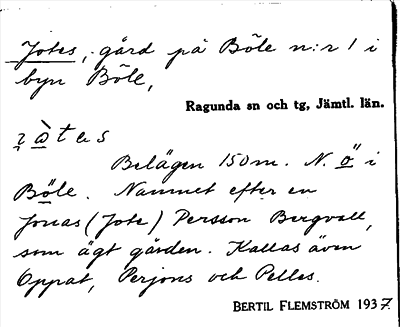 Jotes, gård på Böle n:r 1 i
byn Böle,
Ragunda sn och tg, Jämtl. län.
Belägen 150 m. N. ö i
Böle. Namnet efter en
Jonas (Jote) Persson Bergvall,
som ägt gården. Kallas även
Oppat, Perjons och Pelles.
BERTIL FLEMSTRÖM 1937.